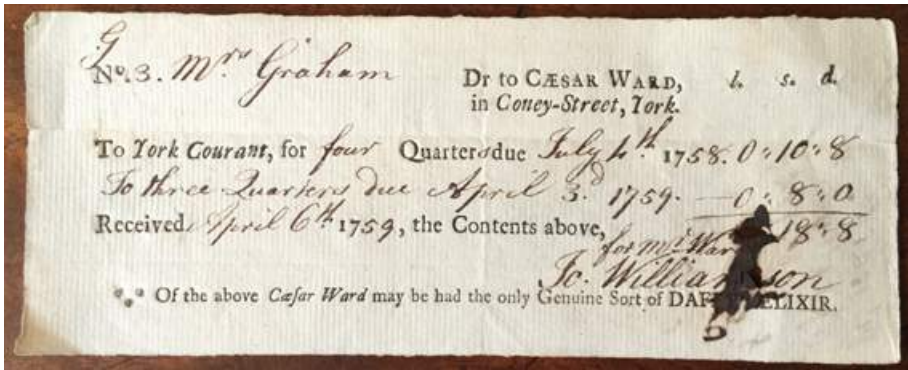 G
No. 3. Mrs Graham
Dr to CÆSAR WARD, l. s. d.
in Coney-Street, York.
To York Courant, for four Quarters due July 4th. 1758. 0:10:8
To three Quarters due April 3d. 1759. 0:8:0
Received April 6th. 1759, the Contents above, 18:8
for Mr. Ward
Jo. Williamson
Of the above Cæsar Ward may be had the only Genuine Sort of DAFFY'S ELIXIR.